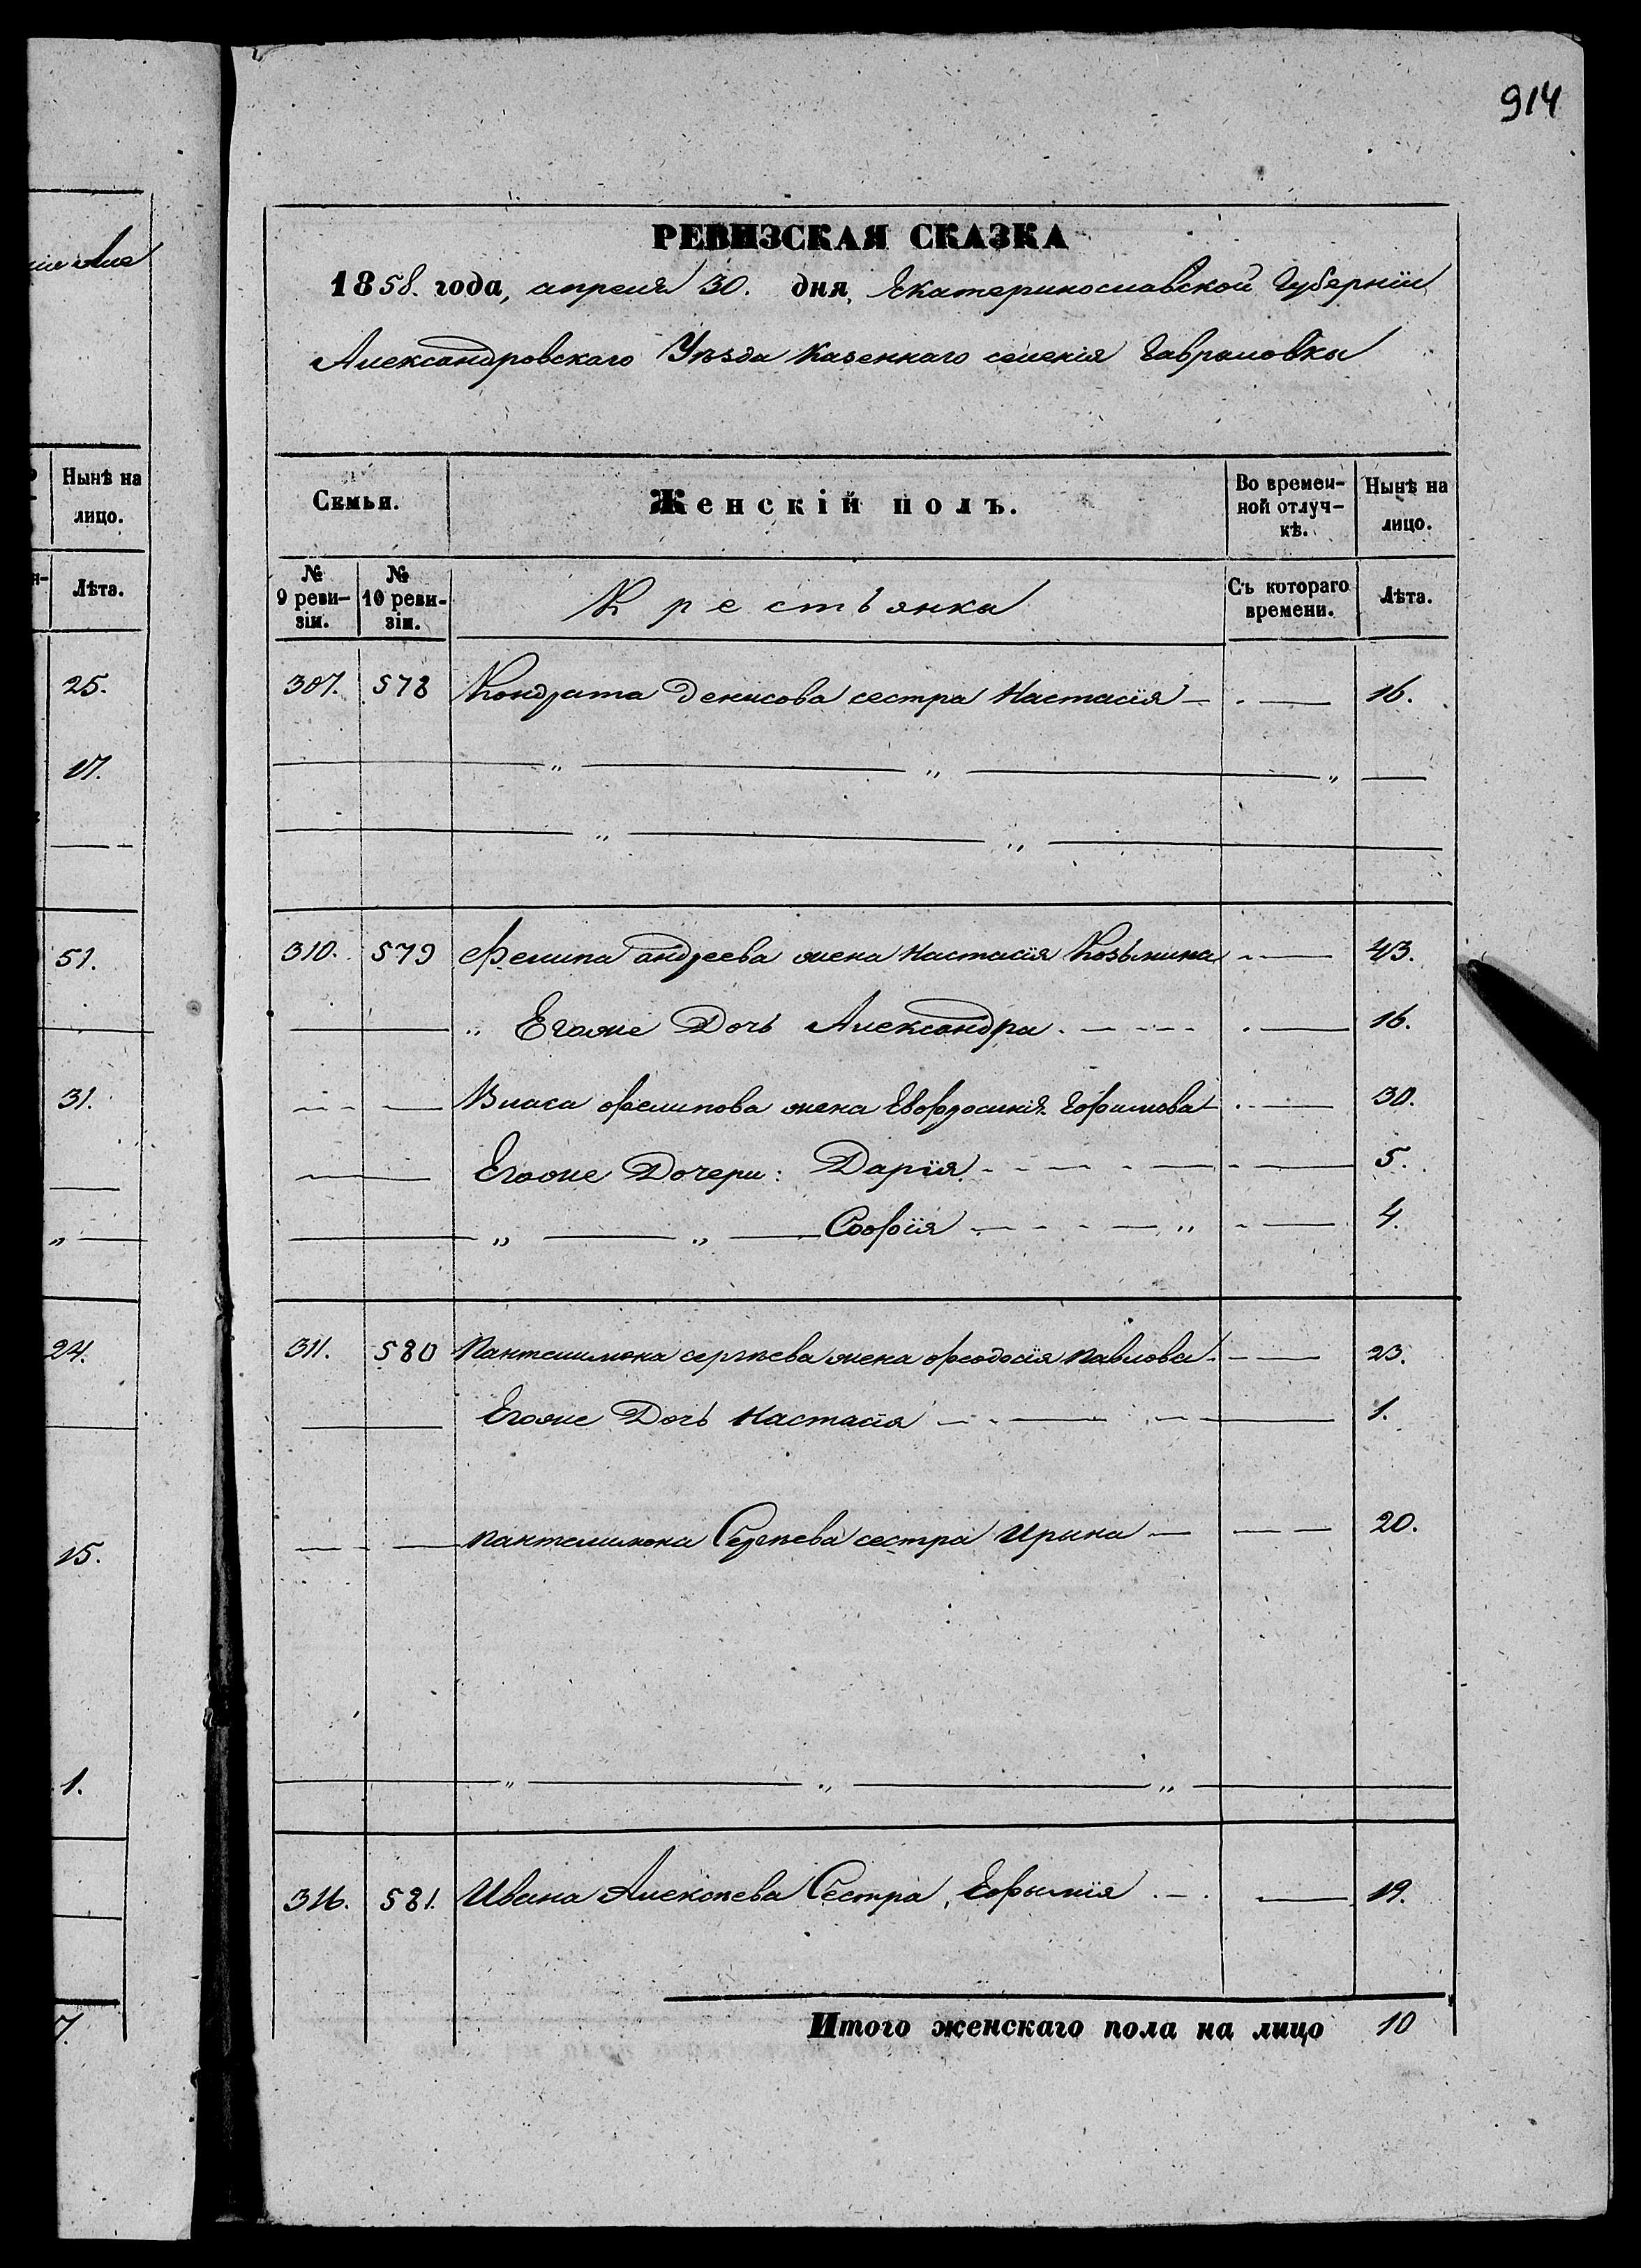 914
РЕВИЗСКАЯ СКАЗКА
1858. года, апреля 30. дня, Екатеринославской Губерніи
Александровскаго Уѣзда Казеннаго селенія Гавриловки
Семьи.
Женскій полъ.
Во времен-
ной отлуч-
кѣ.
Нынѣ на
лицо.
№
9 реви-
зіи.
№
10 реви-
зіи.
Крестьянка
Съ котораго
времени.
Лѣта.
307. 578 Кондрата Денисова сестра Настасія 16.
310. 579 Филипа андреева жена Настасія Козьмина 43.
Егоже Дочь Александра 16.
Власа филипова жена Евфросинія Ефимова 30.
Егоже Дочери: Дарія 5.
Софія 4.
311. 580 Пантелимона сергѣева жена феодосія павлова 23.
Егоже Дочь Настасія 1.
пантелимона Сергѣева сестра Ирина 20.
316. 581. Ивана Алексѣева Сестра, Ефимія 19.
Итого женскаго пола на лицо 10
Нынѣ на
лицо.
Лѣта.
25.
17.
51.
31.
24.
15.
1.
7.